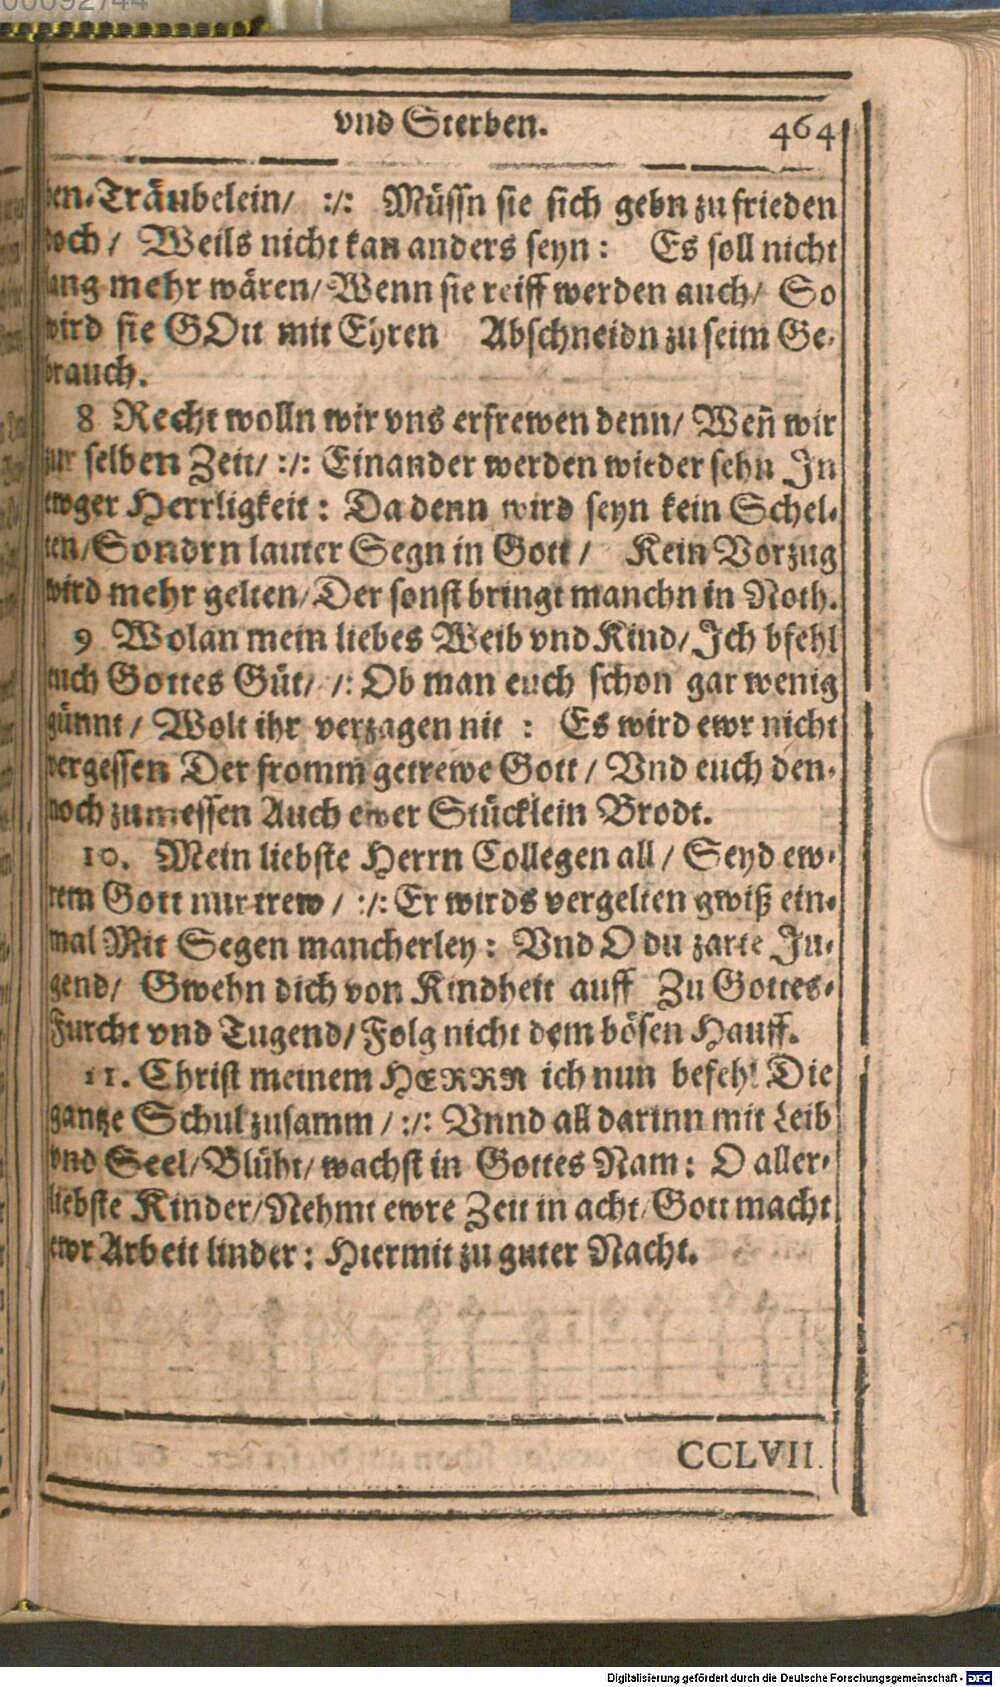 00092744
vnd Sterben. 464
en-Träubelein/ :/: Müssn sie sich gebn zu frieden
doch/ Weils nicht kan anders seyn: Es soll nicht
lang mehr wären/ Wenn sie reiff werden auch/ So
wird sie GOtt mit Ehren Abschneidn zu seim Ge-
brauch.
8 Recht wolln wir vns erfrewen denn/ Weñ wir
zur selben Zeit/ :/: Einander werden wieder sehn In
ewger Herrligkeit: Da denn wird seyn kein Schel-
ten/ Sondrn lauter Segn in Gott/ Kein Vorzug
wird mehr gelten/ Der sonst bringt manchn in Noth.
9 Wolan mein liebes Weib vnd Kind/ Ich bfehl
euch Gottes Güt/ /: Ob man euch schon gar wenig
günnt/ Wolt ihr verzagen nit : Es wird ewr nicht
vergessen Der fromm getrewe Gott/ Vnd euch den-
noch zumessen Auch ewer Stücklein Brodt.
10. Mein liebste Herrn Collegen all/ Seyd ew-
rem Gott nur trew/ :/: Er wirds vergelten gwiß ein-
mal Mit Segen mancherley: Vnd O du zarte Ju-
gend/ Gwehn dich von Kindheit auff Zu Gottes-
Furcht vnd Tugend/ Folg nicht dem bösen Hauff.
11. Christ meinem HERRN ich nun befehl Die
gantze Schul zusamm/ :/: Vnnd all darinn mit Leib
vnd Seel/ Blüht/ wachst in Gottes Nam: O aller-
liebste Kinder/ Nehmt ewre Zeit in acht/ Gott macht
ewr Arbeit linder: Hiermit zu guter Nacht.
CCLVII.
Digitalisierung gefördert durch die Deutsche Forschungsgemeinschaft - DFG